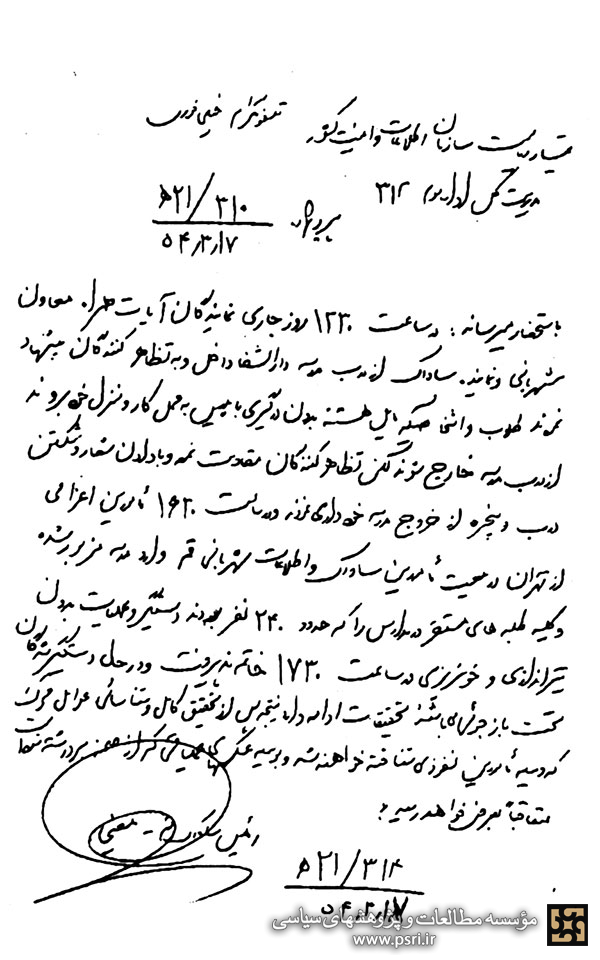 تلفونگرام خیلی فوری
تیمسار ریاست سازمان اطلاعات و امنیت کشور
مدیریت کل اداره سوم ۳۱۲
پیرو ۳۱۰/ ۵۲۱
۵۴٫۳٫۱۷
باستحضار میرساند: در ساعت ۱۲۳۰ روز جاری نمایندگان آیات معاون
شهربانی و نماینده ساواک از درب مدرسه دارالشفا داخل و به تظاهر کنندگان پیشنهاد
نمودند طلاب و اشخاصیکه مایل هستند بدون درگیری با پلیس به محل کار و منزل خود بروند
از درب مدرسه خارج شوند لکن تظاهر کنندگان مقاومت نموده و با دادن شعار و شکستن
درب و پنجره از خروج مدرسه خودداری نمودند و در ساعت ۱۶۲۰ مأمورین اعزامی
از تهران در معیت مأمورین ساواک و اطلاعات شهربانی قم وارد مدرسه مزبور شده
و کلیه طلبه‌های مستقر در مدارس را که حدود ۲۴۰ نفر بودند دستگیر و عملیات بدون
تیراندازی و خونریزی در ساعت ۱۷۳۰ خاتمه پذیرفت و در حال از دستگیرشدگان
تحت بازجوئی میباشند تحقیقات ادامه دارد نتیجه پس از تحقیق کامل و شناسائی عوامل محرک
که وسیله مأمورین نفوذی شناخته خواهند شد و بوسیله عکسهای که از صحن برداشته شده است
متعاقباً بعرض خواهد رسید.
رئیس ساواک قم - معینی
۳۱۴/ ۵۲۱
۵۴٫۳٫۱۷
مؤسسه مطالعات و پژوهشهای سیاسی
www.psri.ir